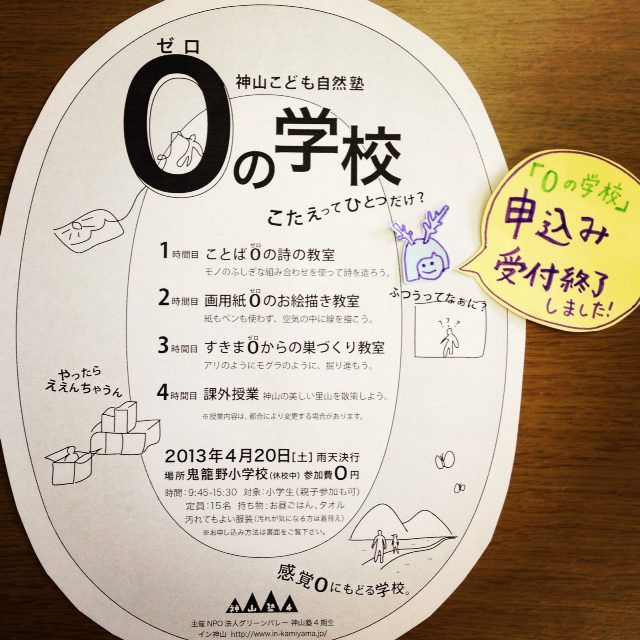 ゼロ
神山こども自然塾
0の学校
こたえってひとつだけ?
1時間目 ことば0の詩の教室
ゼロ
モノのふしぎな組み合わせを使って詩を造ろう。
2時間目 画用紙0のお絵描き教室
ゼロ
紙もペンも使わず、空気の中に線を描こう。
3時間目 すきま0からの巣づくり教室
ゼロ
アリのようにモグラのように、掘り進もう。
4時間目 課外授業 神山の美しい里山を散策しよう。
※授業内容は、都合により変更する場合があります。
ふつうってなぁに?
???
やったら
ええんちゃうん
2013年4月20日[土]雨天決行
場所 鬼籠野小学校(休校中) 参加費0円
時間:9:45-15:30 対象:小学生(親子参加も可)
定員:15名 持ち物:お昼ごはん、タオル
汚れてもよい服装(汚れが気になる方は着替え)
※お申し込み方法は裏面をご覧下さい。
感覚0にもどる学校。
神山塾4
主催 NPO法人グリーンバレー 神山塾4期生
イン神山 http://www.in-kamiyama.jp/
「0の学校」
申込み
受付終了
しました!